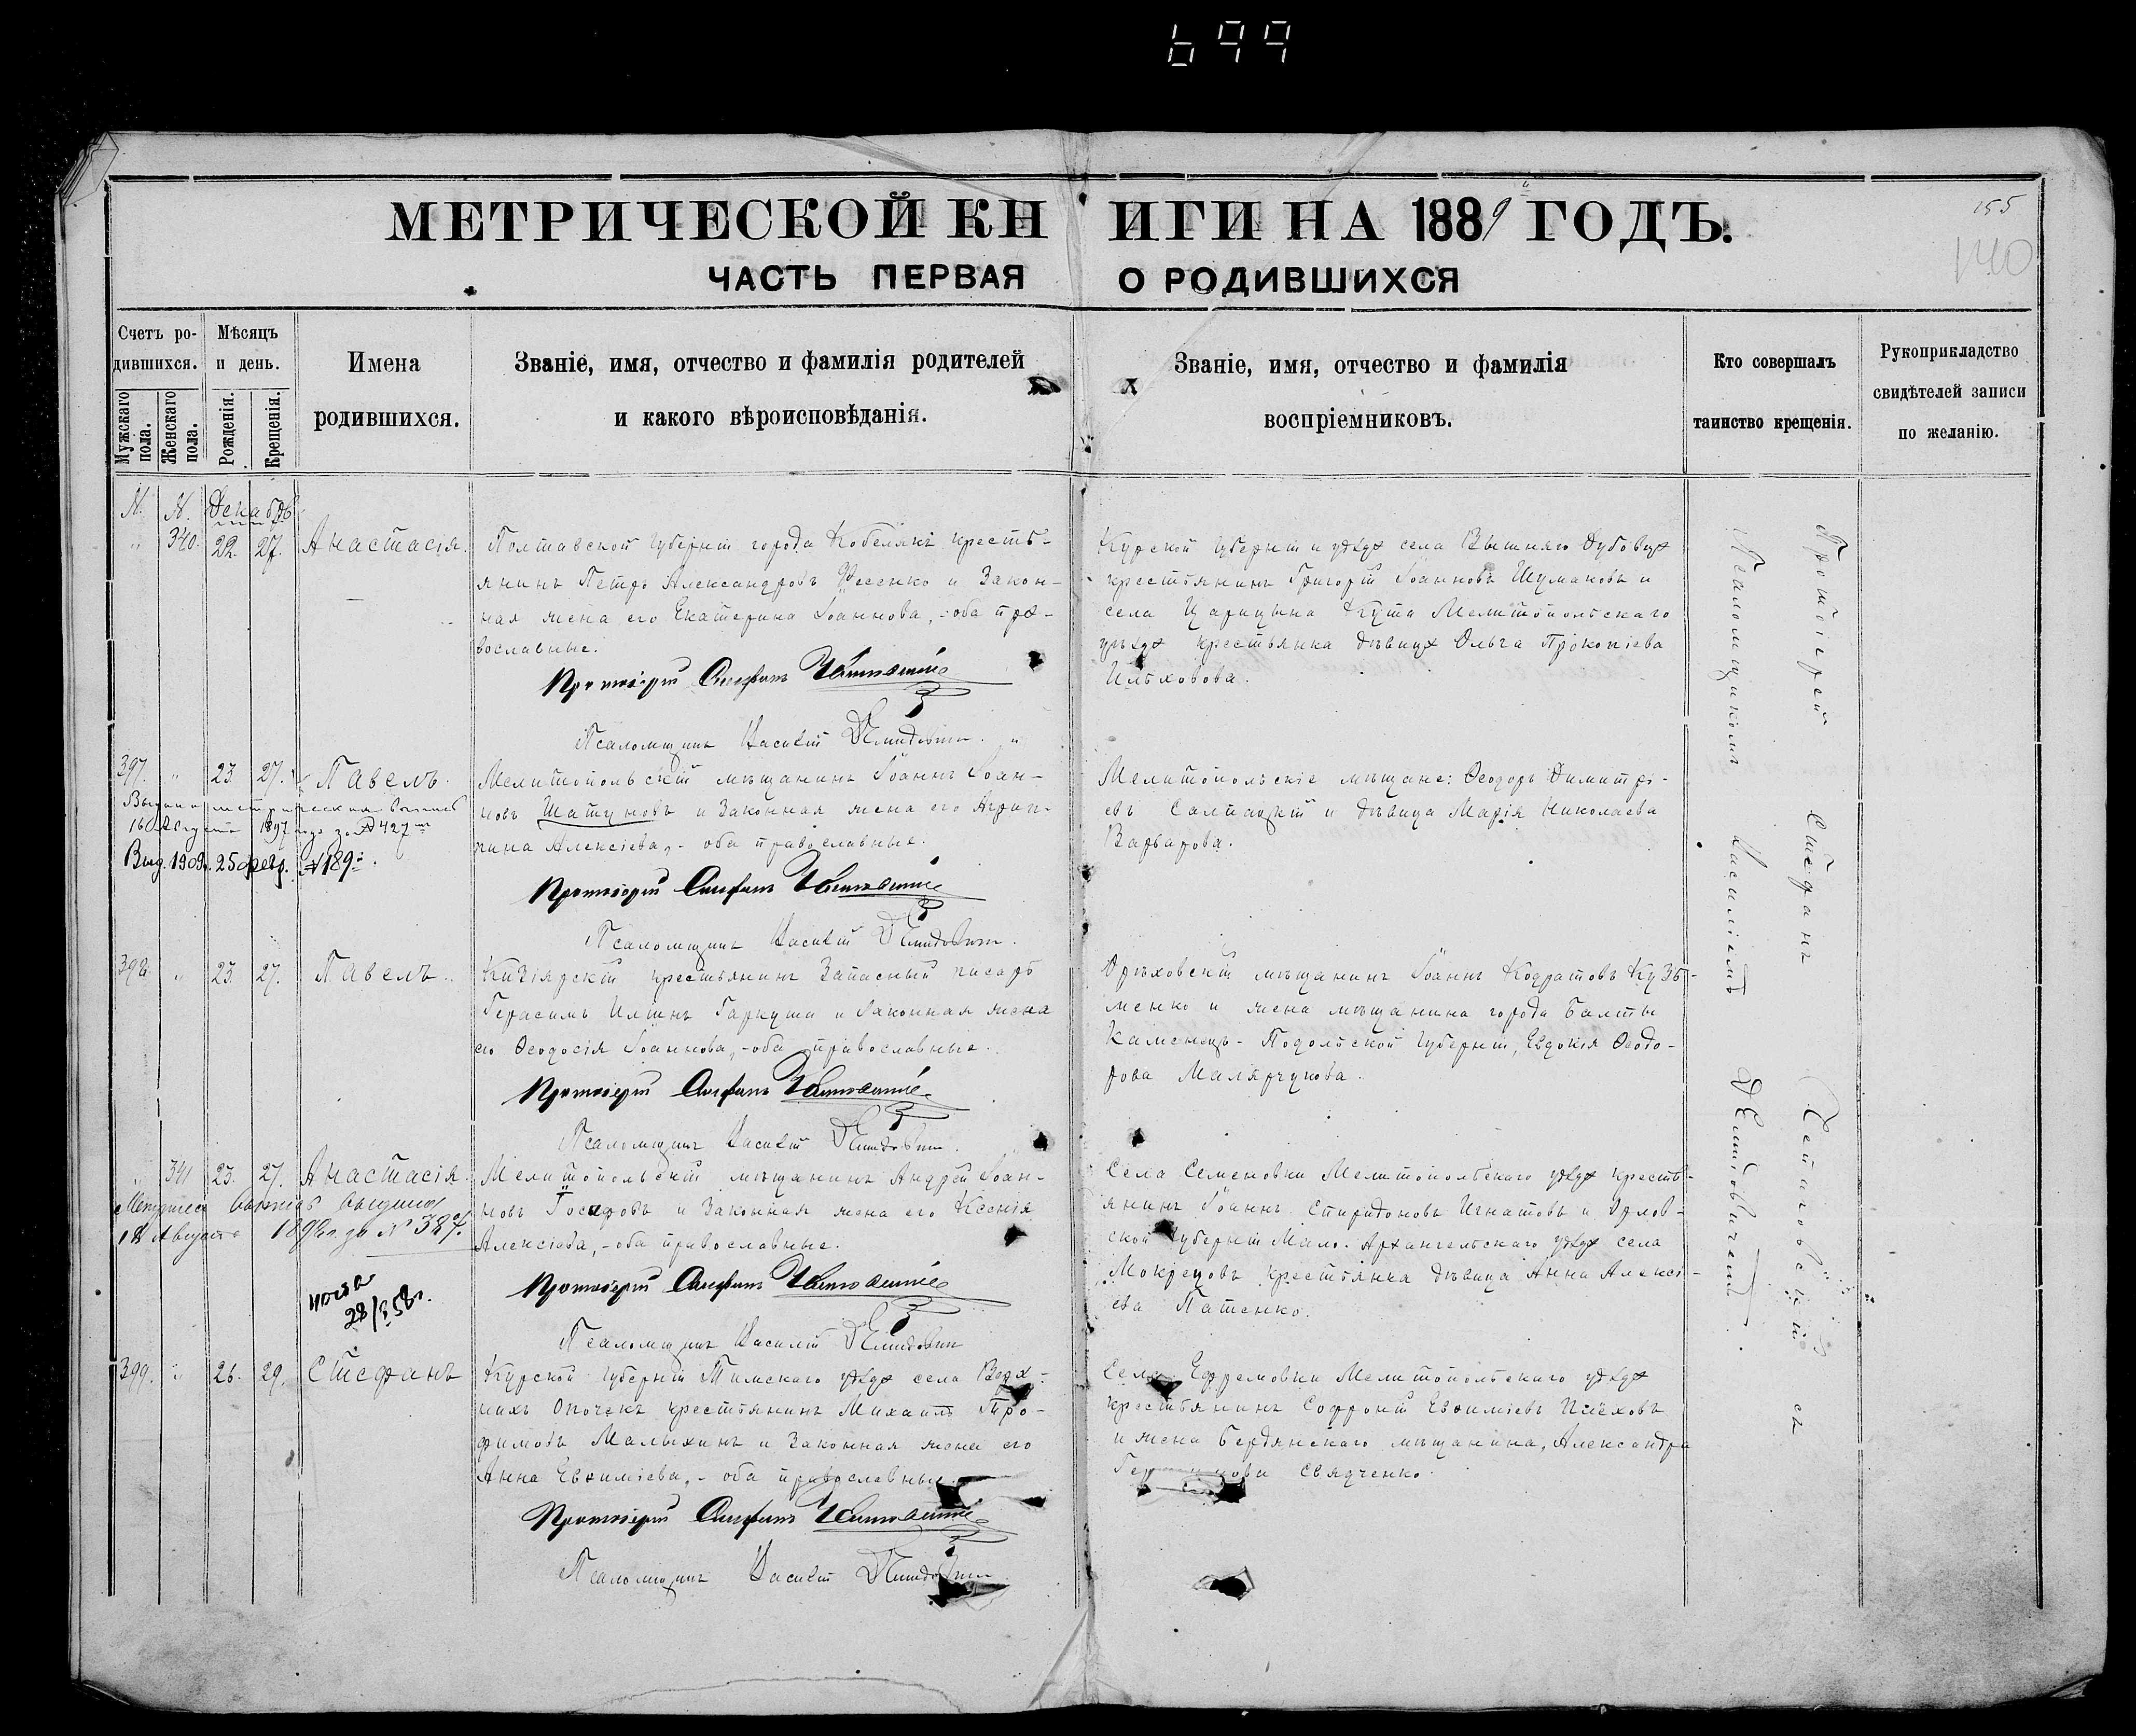 699
155
140
МЕТРИЧЕСКОЙ КНИГИ НА 1889 ГОДЪ.
ЧАСТЬ ПЕРВАЯ О РОДИВШИХСЯ
Счетъ родившихся.
Мужскаго пола.
Женскаго пола.
Мѣсяцъ и день.
Рожденія.
Крещенія.
Имена
родившихся.
Званіе, имя, отчество и фамилія родителей
и какого вѣроисповѣданія.
Званіе, имя, отчество и фамилія
воспріемниковъ.
Кто совершалъ
таинство крещенія.
Рукоприкладство
свидѣтелей записи
по желанію.
N. N. Декабрь
" 340. 22. 27. Анастасія.
Полтавской губерніи города Кобелякъ кресть-
янинъ Петръ Александровъ Фесенко и закон-
ная жена его Екатерина Іоаннова, - оба пра-
вославные.
Протоіерей Стефанъ
Псаломщикъ Василій Демидовичъ.
Курской губерніи и уѣзда села Вышняго Дубовца
крестьянинъ Григорій Іоанновъ Шумаковъ и
села Царицына Кута Мелитопольскаго
уѣзда крестьянка дѣвица Ольга Прокопіева
Ильховова.
397. " 23 27. Павелъ.
Выдана метрическая выпись
16 Августа 1897 года за № 427
Выд. 1909 г. 25 февр. № 189.
Мелитопольскій мѣщанинъ Іоаннъ Іоан-
новъ Шатуновъ и законная жена его Агрип-
пина Алексіева, - оба православные.
Протоіерей Стефанъ
Псаломщикъ Василій Демидовичъ.
Мелитопольскіе мѣщане: Ѳеодоръ Димитрі-
евъ Салтацкій и дѣвица Марія Николаева
Варварова.
398 " 23. 27. Павелъ.
Кизіярскій крестьянинъ запасный писарь
Герасимъ Ильинъ Гаркуша и законная жена
его Ѳеодосія Іоаннова, - оба православные.
Протоіерей Стефанъ
Псаломщикъ Василій Демидовичъ.
Орѣховскій мѣщанинъ Іоаннъ Кодратовъ Кузь-
менко и жена мѣщанина города Балты
Каменецъ-Подольской губерніи, Евдокія Ѳеодо-
рова Малярчукова.
" 341 23. 27. Анастасія.
18 Августа
28/
Мелитопольскій мѣщанинъ Андрей Іоан-
новъ и законная жена его Ксенія
Алексіева, - оба православные.
Протоіерей Стефанъ
Псаломщикъ Василій Демидовичъ
Села Семеновки Мелитопольскаго уѣзда кресть-
янинъ Іоаннъ Спиридоновъ Игнатовъ и Орлов-
ской губерніи Мало-Архангельскаго уѣзда села
Мокрецовъ крестьянка дѣвица Анна Алексі-
ева Патенко.
399. " 26. 29. Стефанъ
Курской губерніи Тимскаго уѣзда села Верх-
нихъ Опочекъ крестьянинъ Михаилъ Тро-
фимовъ Малыхинъ и законная жена его
Анна Евѳиміева, - оба православные.
Протоіерей Стефанъ
Псаломщикъ Василій Демидовичъ
Села Ефремовки Мелитопольскаго уѣзда
крестьянинъ Софроній Евѳиміевъ
и жена Бердянскаго мѣщанина, Александра
Свядченко.
Протоіерей Стефанъ съ
Псаломщикомъ Василіемъ Демидовичемъ.